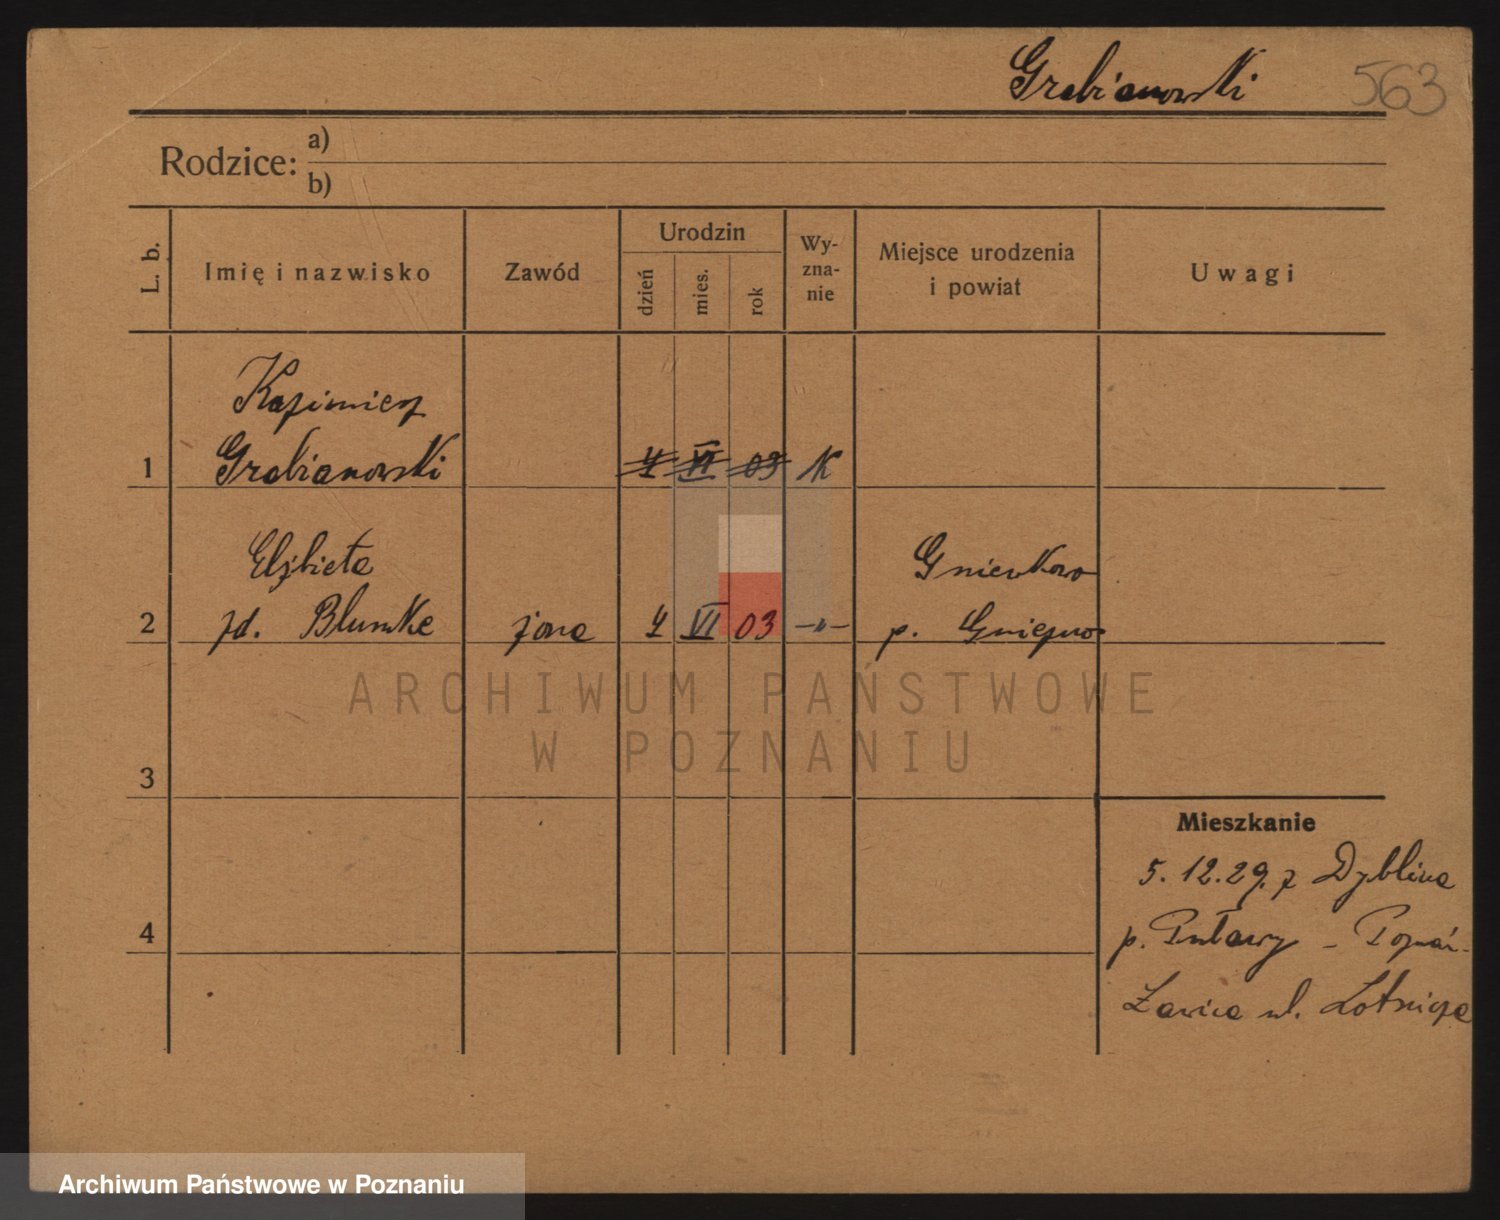 Grabianowski 563
Rodzice: a)
b)
L. b. Imię i nazwisko Zawód Urodzin dzień mies. rok Wy-zna-nie Miejsce urodzenia i powiat Uwagi
Kazimierz
1 Grabianowski 4 VI 03 K
Elżbieta Gniewkowo
2 zd. Blumke żona 4 VI 03 -„- p. Gniezno
ARCHIWUM PAŃSTWOWE
W POZNANIU
3
Mieszkanie
5.12.29. z Dęblina
4 p. Puławy - Poznań-
Ławica ul. Lotnicza
Archiwum Państwowe w Poznaniu